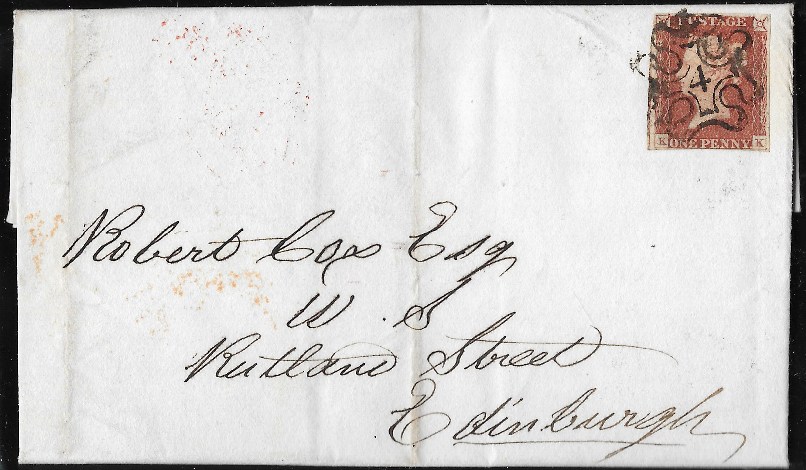 POSTAGE
4
K K
ONE PENNY
Robert Cox Esq
W. S
Rutland Street
Edinburgh